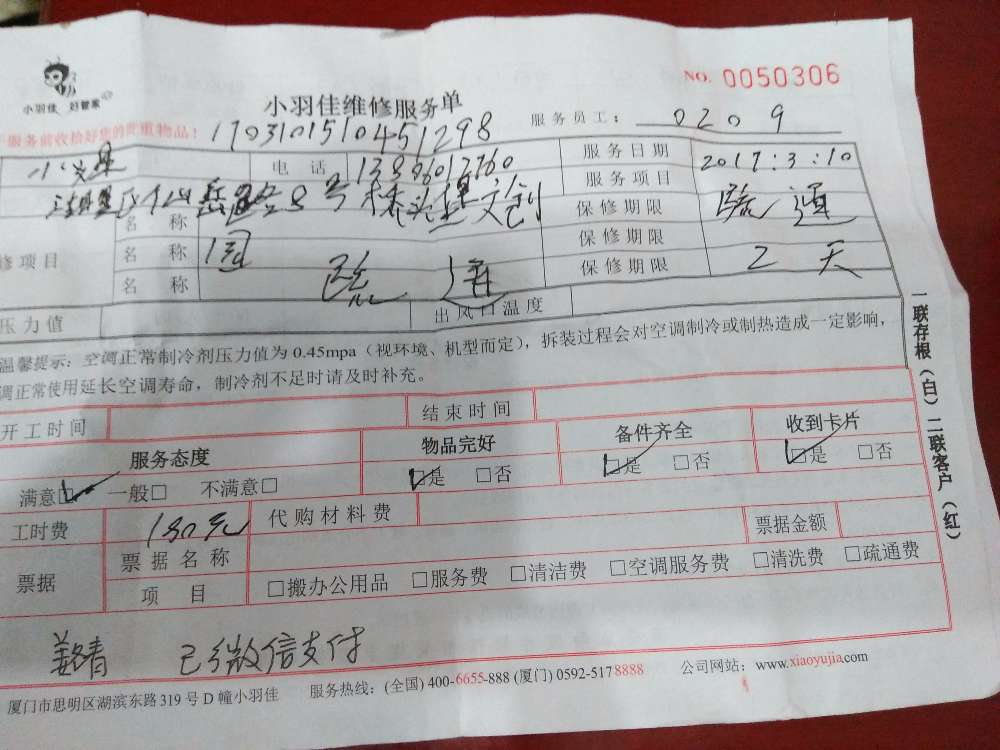 小羽佳 好管家
NO. 0050306
小羽佳维修服务单
服务前收拾好您的贵重物品！
170310151045 1298
服务员工： 0209
电 话
服务日期 2017:3:10
服务项目 疏通
名 称
保修期限
修项目 名 称
保修期限
名 称 疏通
保修期限 2 天
压力值
出风口温度
温馨提示：空调正常制冷剂压力值为 0.45mpa（视环境、机型而定），拆装过程会对空调制冷或制热造成一定影响，
调正常使用延长空调寿命，制冷剂不足时请及时补充。
开工时间
结束时间
服务态度 物品完好 备件齐全 收到卡片
满意□ 一般□ 不满意□ □是 □否 □是 □否 □是 □否
工时费 130元 代购材料费
票据 票据名称 票据金额
项 目 □搬办公用品 □服务费 □清洁费 □空调服务费 □清洗费 □疏通费
已微信支付
厦门市思明区湖滨东路 319 号 D 幢小羽佳 服务热线：(全国) 400-6655-888 (厦门) 0592-517 8888 公司网站：www.xiaoyujia.com
一联存根（白）二联客户（红）